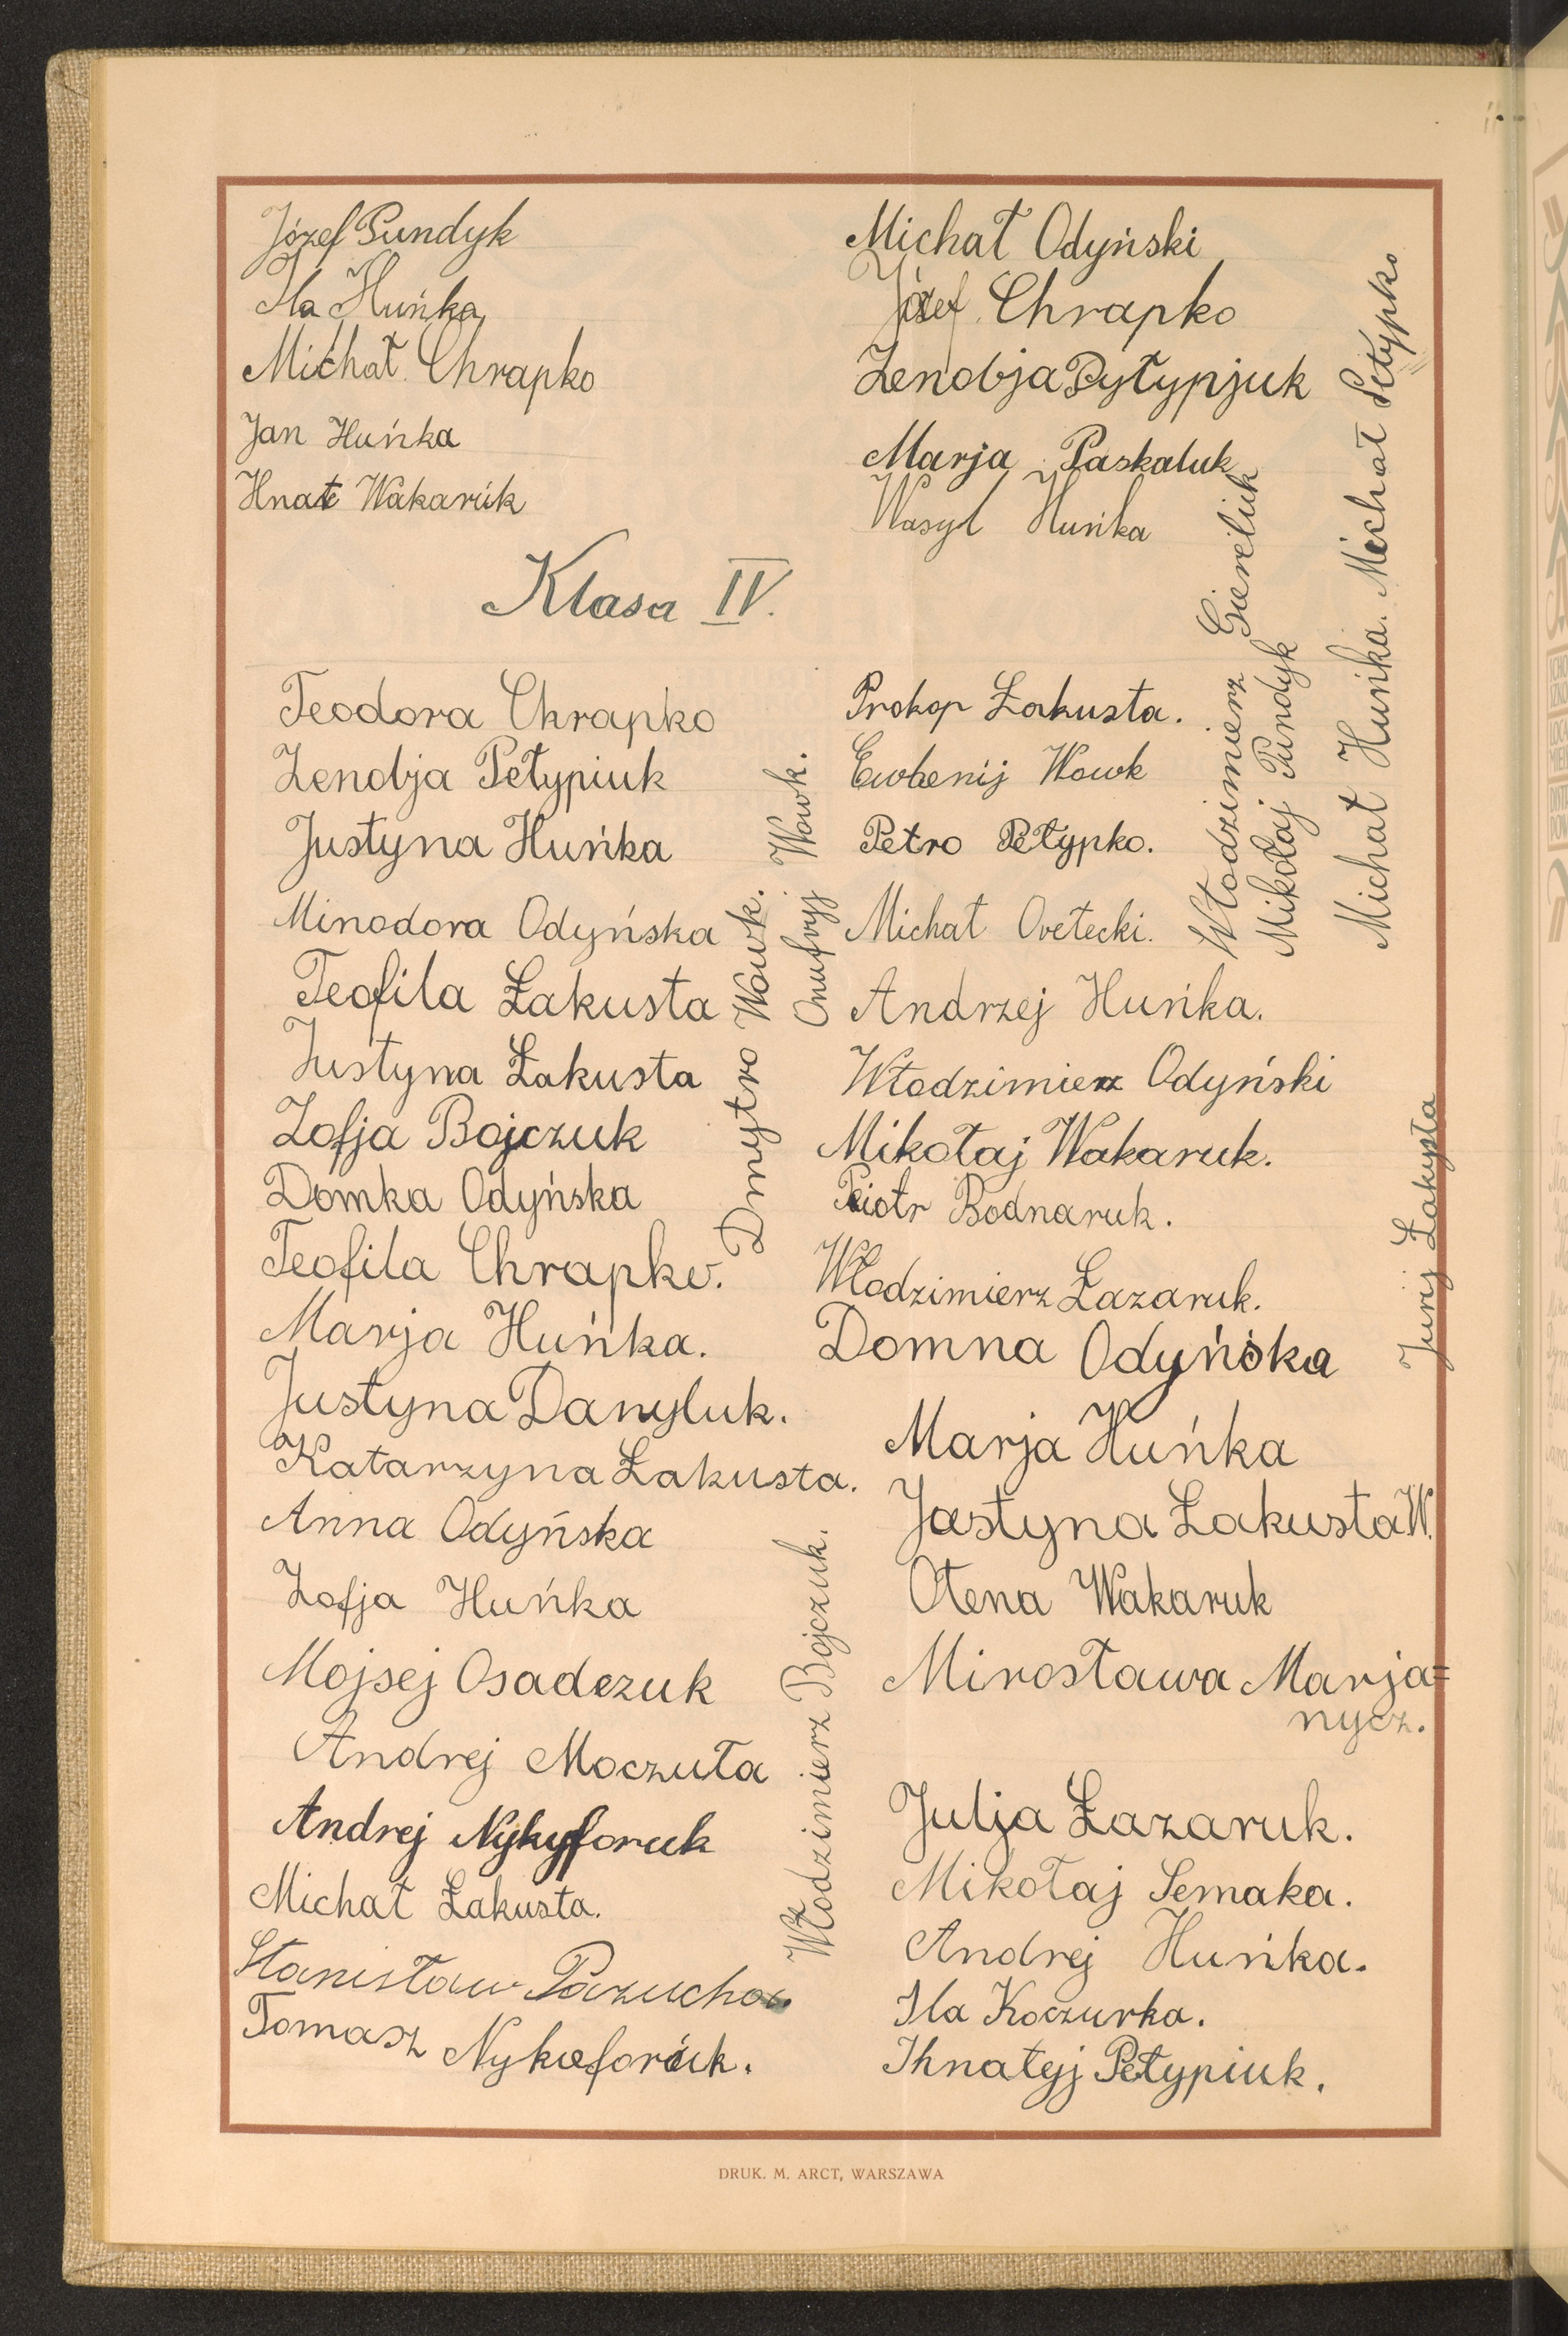 Józef Pundyk
Ila Huńka
Michał Chrapko
Jan Huńka
Hnat Wakaruk
Michał Odyński
Józef Chrapko
Zenobja Pyłypjuk
Marja Paskaluk
Wasyl Huńka
Klasa IV.
Teodora Chrapko
Zenobja Pełypiuk
Justyna Huńka
Minodora Odyńska
Teofila Łakusta
Justyna Łakusta
Zofja Bojczuk
Domka Odyńska
Teofila Chrapko.
Marja Huńka.
Justyna Danyluk.
Katarzyna Łakusta.
Anna Odyńska
Zofja Huńka
Mojsej Osadczuk
Andrej Moczuła
Andrej Nykyforuk
Michał Łakusta.
Stanisław Pazucha
Tomasz Nykieforuk.
Dmytro Wowk.
Onufryj Wowk.
Włodzimierz Bojczuk.
Prokop Łakusta.
Ewhenij Wowk
Petro Pełypko.
Michał Owełecki.
Andrzej Huńka.
Włodzimierz Odyński
Mikołaj Wakaruk.
Piotr Bodnaruk.
Włodzimierz Łazaruk.
Domna Odyńska
Marja Huńka
Justyna Łakusta W.
Ołena Wakaruk
Mirosława Marja=
nycz.
Julja Łazaruk.
Mikołaj Semaka.
Andrej Huńka.
Ila Koczurka.
Ihnatyj Pełypiuk.
Włodzimierz Giereluk
Mikołaj Pundyk
Michał Huńka. Michał Pełypko
Jurij Łakusta
DRUK. M. ARCT, WARSZAWA